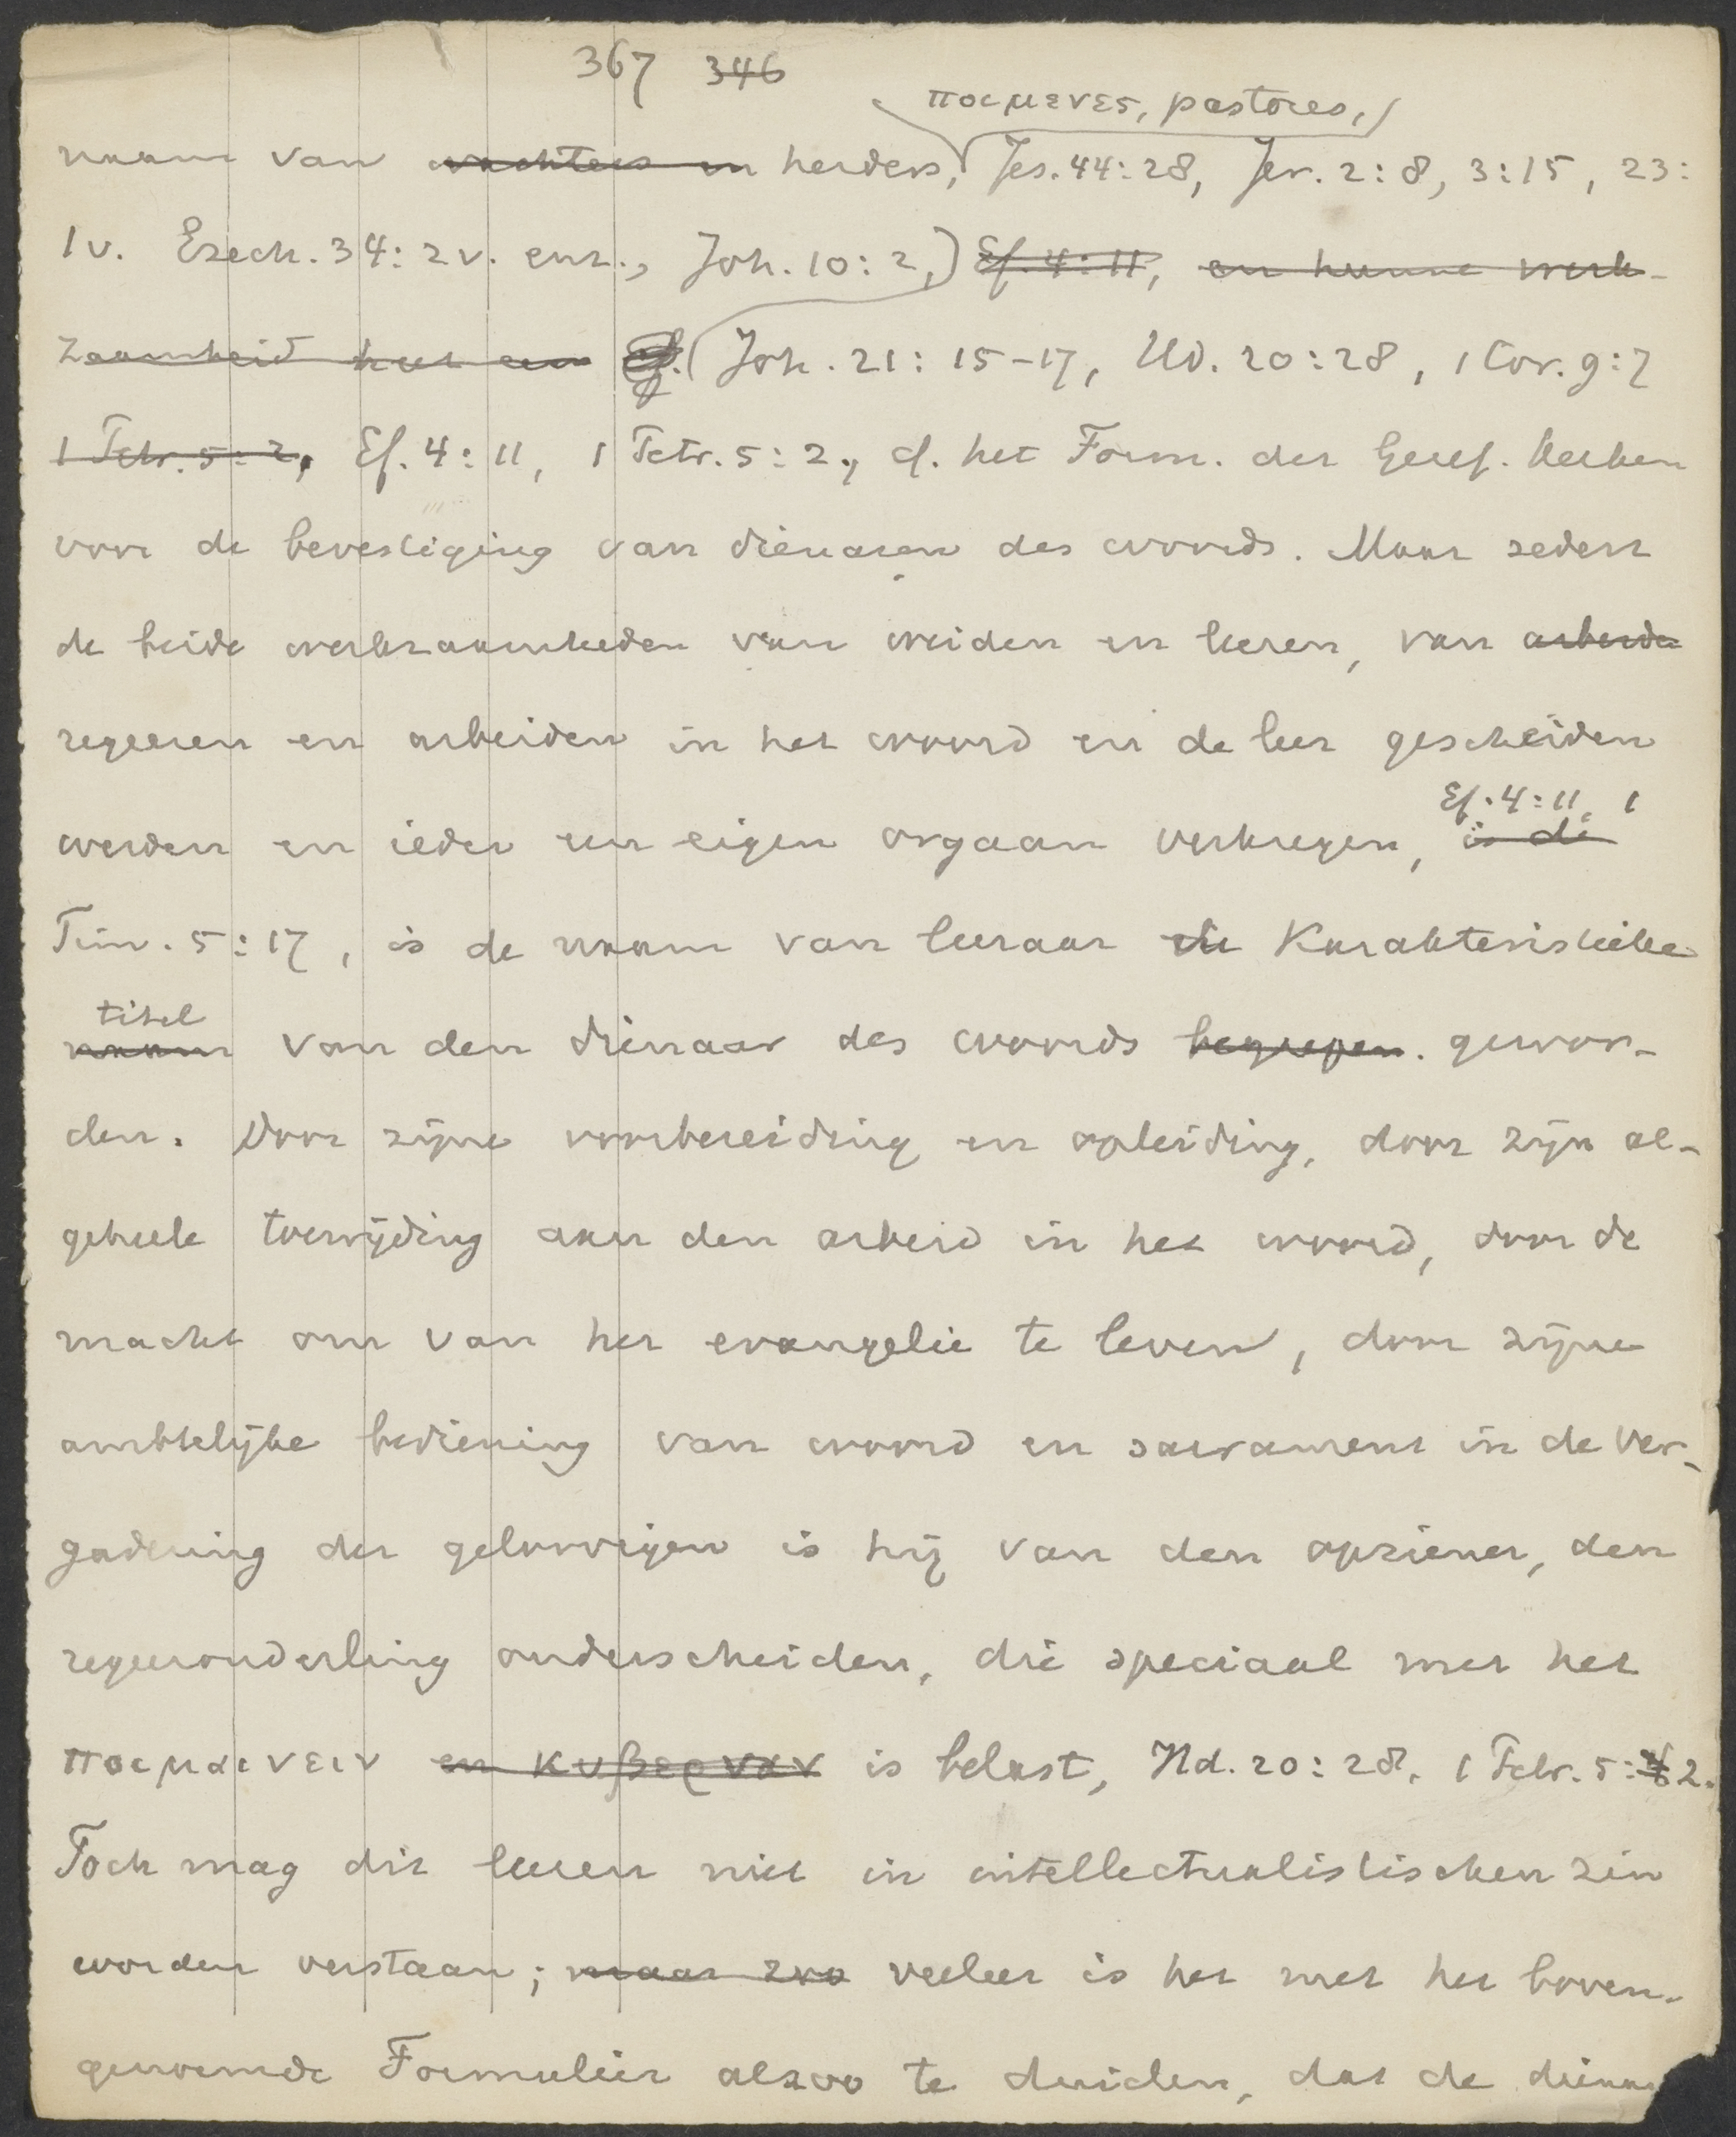 367 346
ποιμενες, pastores,
naam van wachters en herders, Jes. 44:28, Jer. 2:8, 3:15, 23:
1v. Ezech. 34:2v. enz., Joh. 10:2,) Ef. 4:11, en hunne werk-
zaamheid het een Ef. (Joh. 21:15-17, Hd. 20:28, 1 Cor. 9:7
1 Petr. 5:2, Ef. 4:11, 1 Petr. 5:2, cf. het Form. der Geref. kerken
voor de bevestiging van dienaren des woords. Maar sedert
de beide werkzaamheden van weiden en leeren, van arbeide
regeeren en arbeiden in het woord en de leer gescheiden
Ef. 4:11, 1
werden en ieder een eigen orgaan verkregen, is de
Tim. 5:17, is de naam van leeraar de karakteristieke
titel
naam van den dienaar des woords begrepen. gewor-
den. Door zijne voorbereiding en opleiding, door zijn al-
geheele toewijding aan den arbeid in het woord, door de
macht om van het evangelie te leven, door zijne
ambtelijke bediening van woord en sacrament in de ver-
gadering der geloovigen is hij van den opziener, den
regeerouderling onderscheiden, die speciaal met het
ποιμαινειν en κυβερναν is belast, Hd. 20:28, 1 Petr. 5:2.
Toch mag dit leeren niet in intellectualistischen zin
worden verstaan; maar zoo veeleer is het met het boven-
genoemde Formulier alzoo te duiden, dat de diena